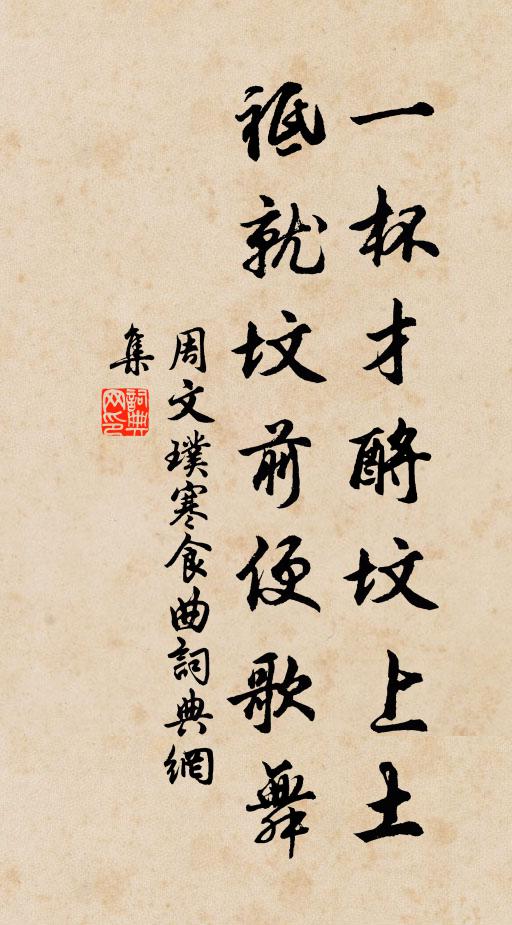 一杯才酹坟上土
祗就坟前便歌舞
周文璞寒食曲詞典網
集
詞典
网印